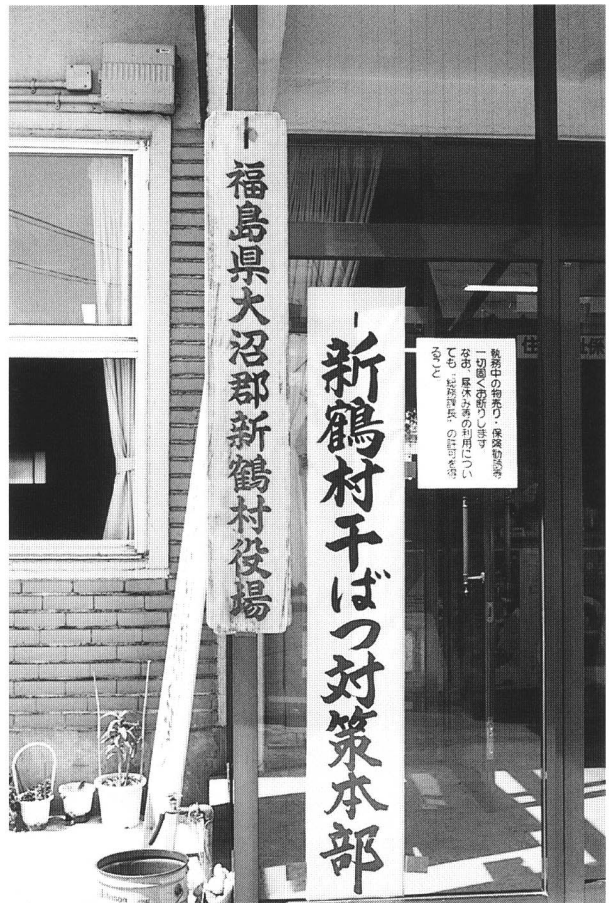 福島県大沼郡新鶴村役場
新鶴村干ばつ対策本部
執務中の物売り・保険勧誘等
一切固くお断りします
なお、昼休み等の利用につい
ても“総務課長”の許可を得
ること